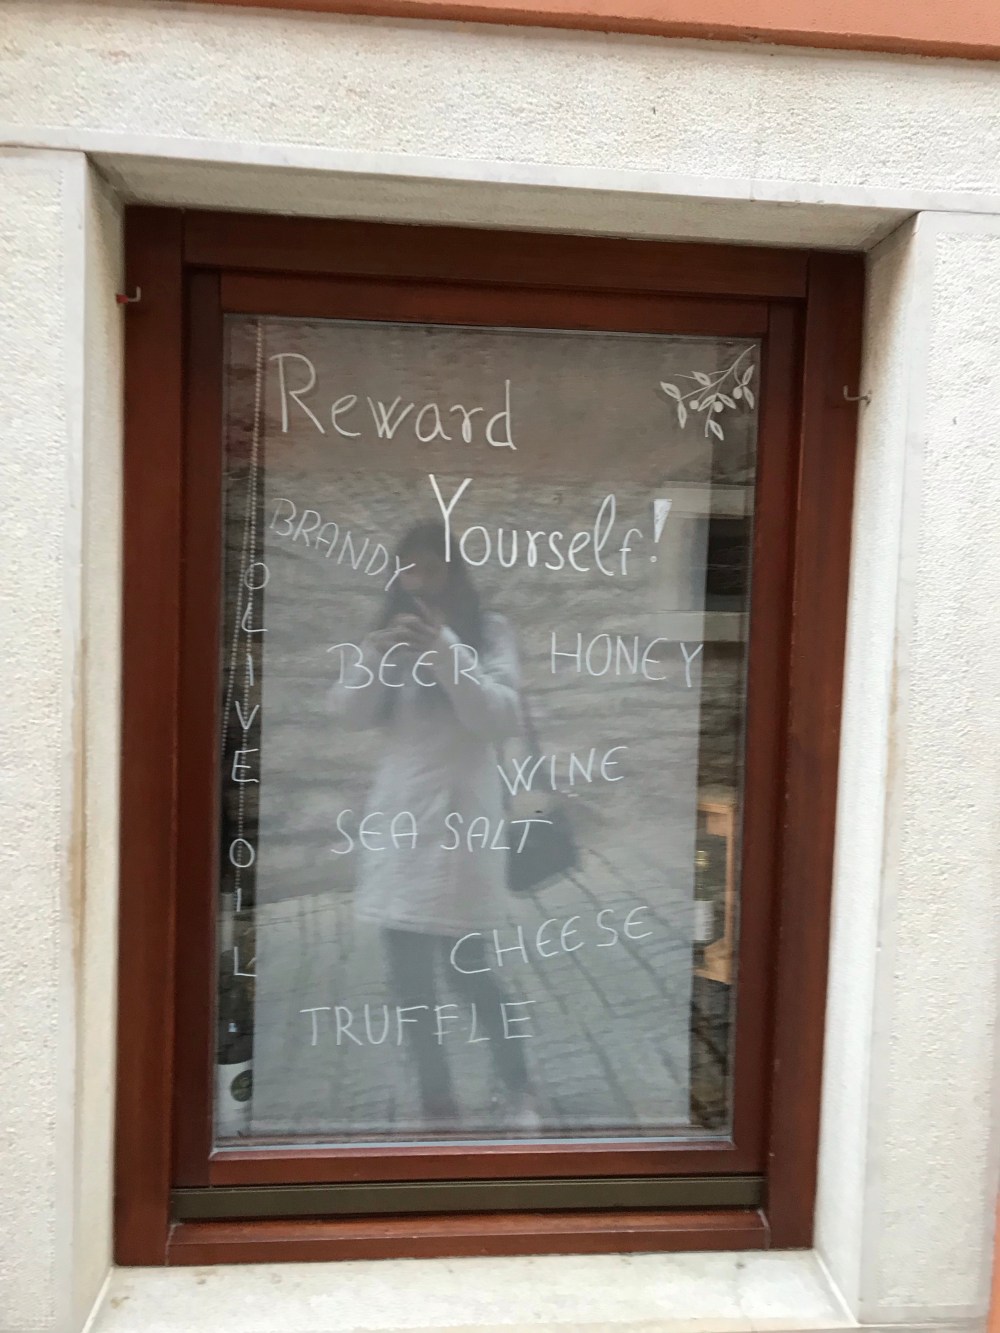 Reward
Yourself!
BRANDY
OLIVE OIL
BEER
HONEY
WINE
SEA SALT
CHEESE
TRUFFLE